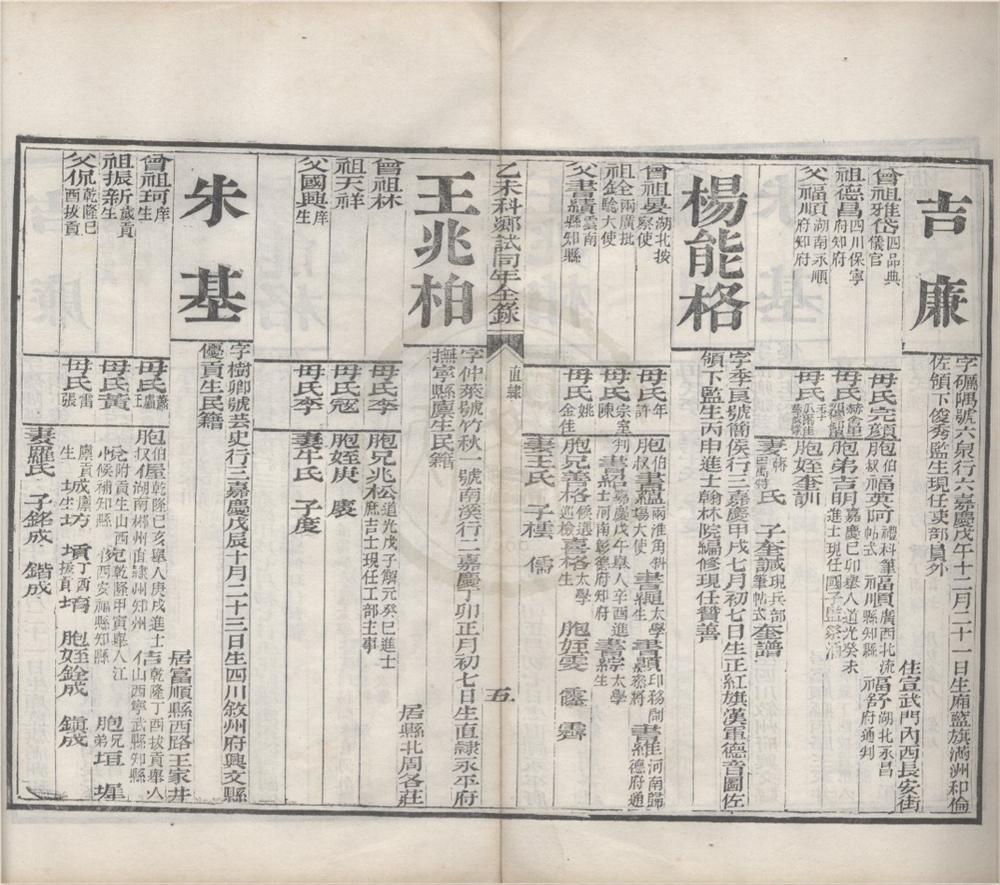 吉廉
字礪隅號六泉行六嘉慶戊午十二月二十一日生廂藍旗滿洲和倫
佐領下俊秀監生現任吏部員外
住宣武門內西長安街
曾祖雅岱四品典儀官
祖德昌四川保寧府知府
父福順湖南永順府知府
母氏完顏
母氏
母氏
胞伯叔福英阿禮科筆帖式 福順廣西北流 福川縣知縣 福舒湖北永昌府通判
胞弟吉明嘉慶己卯舉人道光癸未進士現任國子監
胞姪奎訓
妻氏 子奎諴現兵部筆帖式 奎譜
楊能格
字季良號簡侯行三嘉慶甲戌七月初七日生正紅旗漢軍德音圖佐
領下監生丙申進士翰林院編修現任贊善
曾祖晏湖北按察使
祖全兩廣批驗大使
父書績雲南縣知縣
母氏許年
母氏陳宗室
母氏金佳姚
胞伯叔書蘊兩淮角斜場大使 書紹嘉慶戊午舉人辛酉進士河南彰德府知府 書太學生 書印務參將 書字太學生 書維河南歸德府通判
胞兄善格候選巡檢 喜格太學生 胞姪雯 霳 霽
妻王氏 子樓 儒
乙未科鄉試同年全錄
直隸
五
王兆柏
字仲萊號竹秋一號南溪行二嘉慶丁卯正月初七日生直隸永平府
撫寧縣廩生民籍
居縣北周各莊
曾祖林
祖天祥
父國興庠生
母氏李
母氏寇
母氏李
胞兄兆松道光戊子解元癸巳進士庶吉士現任工部主事
胞姪庚 慶
妻牟氏 子度
朱基
字樹卿號芸史行三嘉慶戊辰十月二十三日生四川敘州府興文縣
優貢生民籍
居富順縣西路王家井
曾祖珂庠生
祖振新歲貢生
父侃乾隆己酉拔貢
母氏蕭盧王
母氏黃
母氏雷張
胞伯叔屋乾隆己亥舉人庚戌進士任湖南郴州直隸州知州 吉乾隆丁酉拔貢舉人任山西寧武縣知縣
附貢生山西候補知縣 乾隆甲寅舉人江西安福縣知縣 胞兄弟垣 墀
廩貢生 成廩生 坊 墳丁酉拔貢 堉 胞姪銓成 鎮成
妻羅氏 子銘成 鍇成